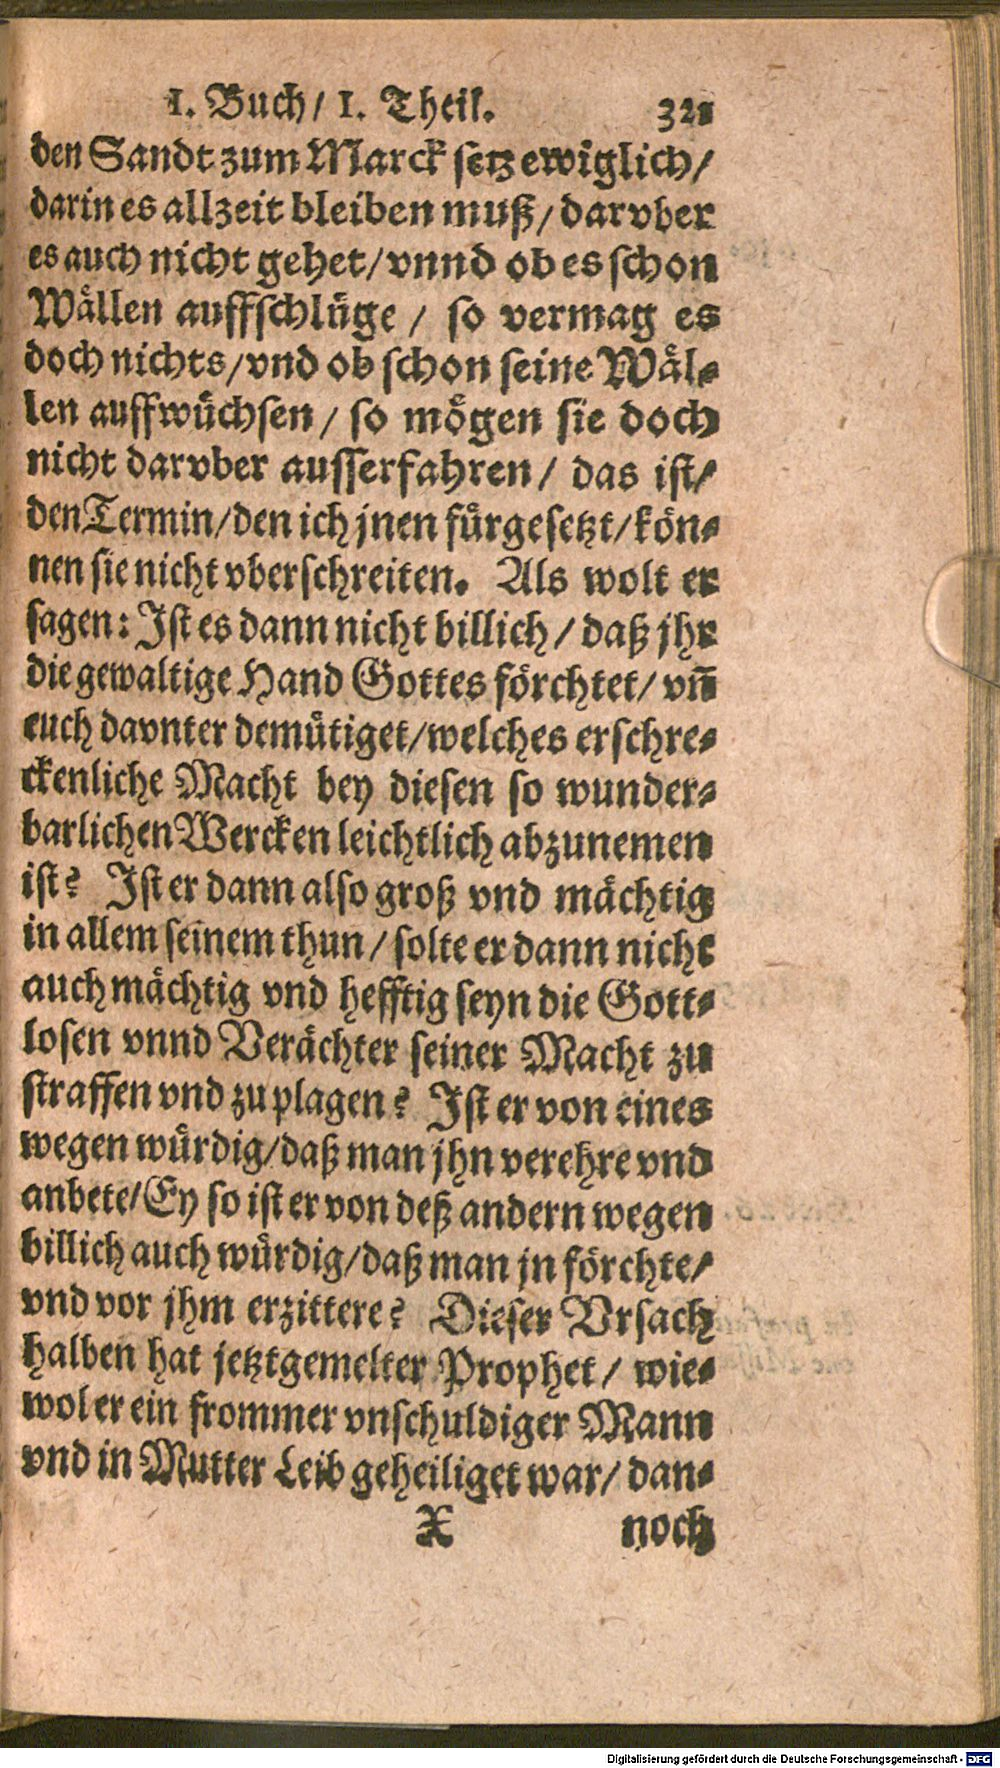 1. Buch / 1. Theil. 321
den Sandt zum Marck setz ewiglich /
darin es allzeit bleiben muß / darvber
es auch nicht gehet / vnnd ob es schon
Wällen auffschlüge / so vermag es
doch nichts / vnd ob schon seine Wäl-
len auffwüchsen / so mögen sie doch
nicht darvber ausserfahren / das ist /
den Termin / den ich jnen fürgesetzt / kön-
nen sie nicht vberschreiten. Als wolt er
sagen: Ist es dann nicht billich / daß jhr
die gewaltige Hand Gottes förchtet / vñ
euch davnter demütiget / welches erschre-
ckenliche Macht bey diesen so wunder-
barlichen Wercken leichtlich abzunemen
ist? Ist er dann also groß vnd mächtig
in allem seinem thun / solte er dann nicht
auch mächtig vnd hefftig seyn die Gott-
losen vnnd Verächter seiner Macht zu
straffen vnd zu plagen? Ist er von eines
wegen würdig / daß man jhn verehre vnd
anbete / Ey so ist er von deß andern wegen
billich auch würdig / daß man jn förchte /
vnd vor jhm erzittere? Dieser Vrsach
halben hat jetztgemelter Prophet / wie-
wol er ein frommer vnschuldiger Mann
vnd in Mutter Leib geheiliget war / dan-
X noch
Digitalisierung gefördert durch die Deutsche Forschungsgemeinschaft - DFG